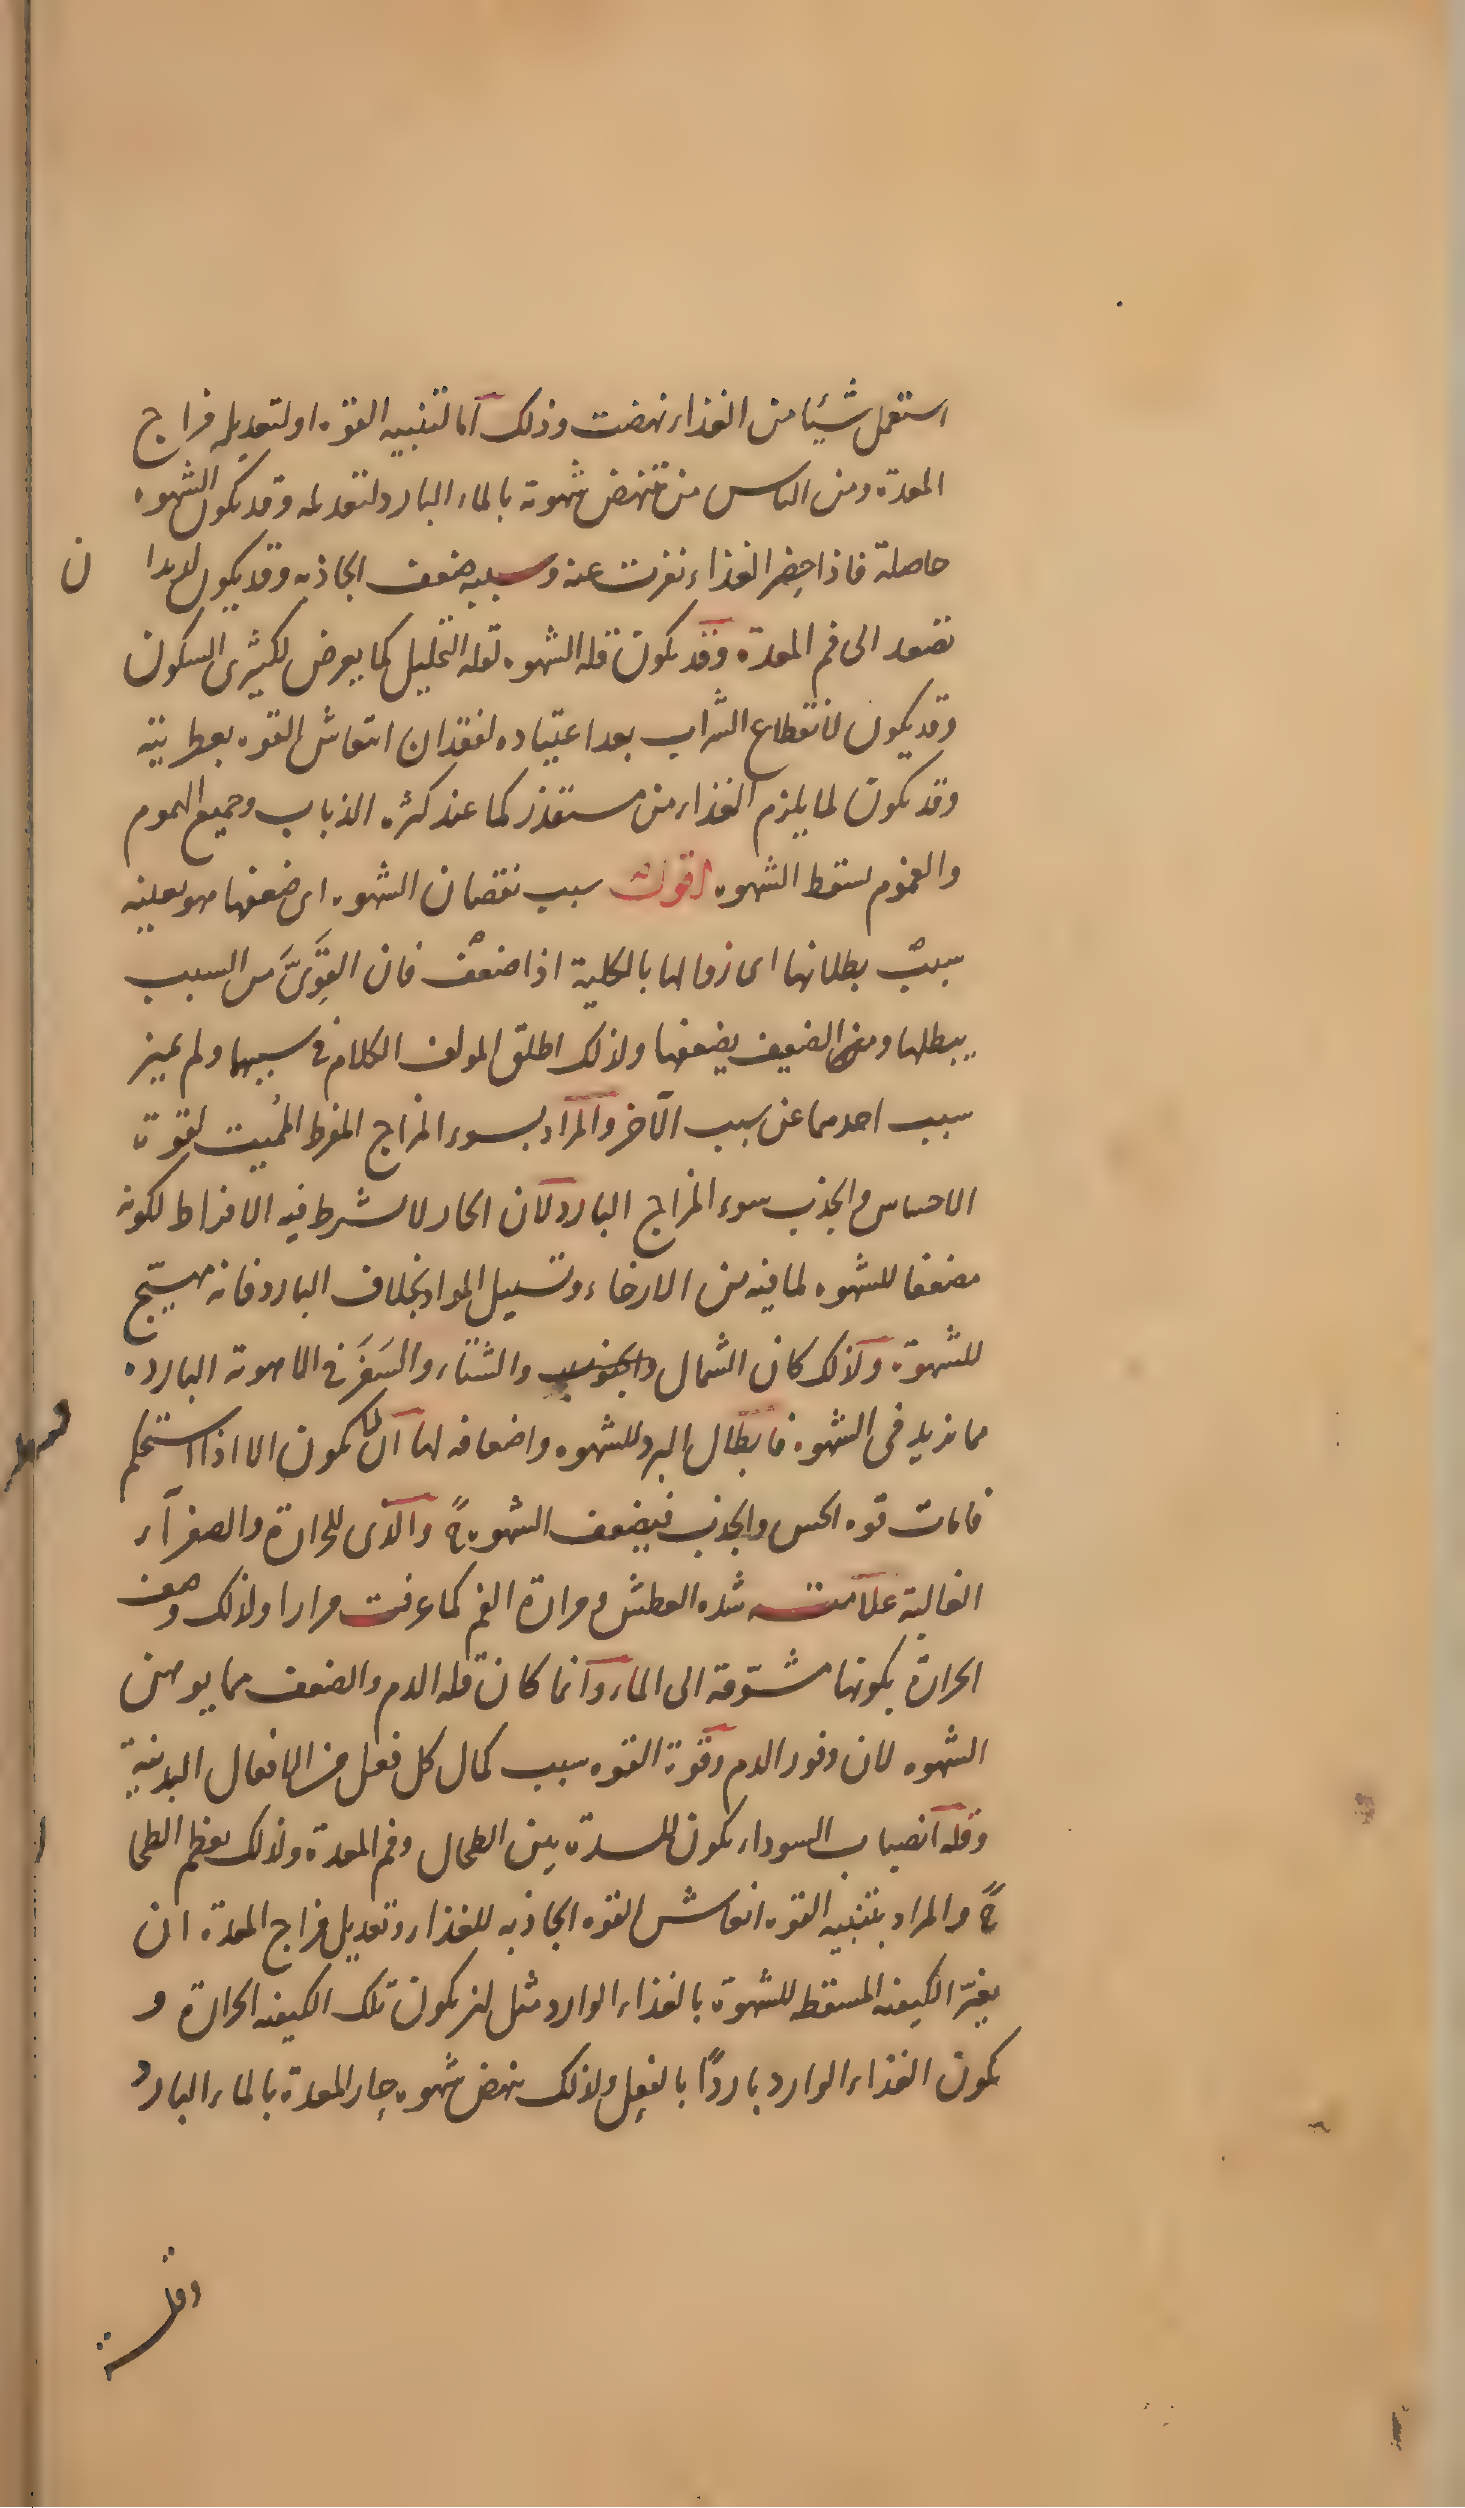 استعمل شيئا من الغذاء نهضت وذلك اما لتنبيه القوة او لتعديله مزاج
المعدة ومن الناس من تنهض شهوته بالماء البارد لتعديله وقد يكون الشهوه
حاصلة فاذا حضر الغذاء نفرت عنه وسببه ضعف الجاذبه وقد يكون لديدان
تصعد الى فم المعدة وقد يكون قله الشهوه لقله التحليل كما يعرض لكثيرى السكون
وقد يكون لانقطاع الشراب بعد اعتياده لفقدان انتعاش القوه بعطريته
وقد يكون لما يلزم الغذاء من مستقذر كما عند كثره الذباب وجميع الهموم
والغموم يسقط الشهوه اقول سبب نقصان الشهوه اى ضعفها هو بعينه
سبب بطلانها اى زوالها بالكلية اذا ضعف فان القوىّ من السبب
يبطلها ومن الضعيف يضعفها ولذلك اطلق المولف الكلام فى سببهما ولم يميز
سبب احدهما عن سبب الآخر والمراد بسوء المزاج المفرط المُميت لقوة
الاحساس والجذب سوء المزاج البارد لان الحار لا يشترط فيه الافراط لكونه
مضعفا للشهوه لما فيه من الارخاء وتسييل المواد بخلاف البارد فانه مهيّج
للشهوة ولذلك كان الشمال والجنوب والشتاء والسفر فى الاهوية الباردة
مما يزيد فى الشهوه فابطال البرد للشهوه واضعافه لها انما يكون الا اذا استحكم
فامات قوه الحس والجذب فيضعف الشهوه ح والذى للحرارة والصفرآء
الغالبة علامته شده العطش ومرارة الفم كما عرفت مرارا ولذلك وصف
الحرارة بكونها مشوّقة الى الماء وانما كان قله الدم والضعف مما يوهن
الشهوه لان وفور الدم وقوة القوه سبب كمال كل فعل من الافعال البدنية
وقلة انصباب السوداء يكون للسدة بين الطحال وفم المعدة ولذلك يعظم الطحا
ح والمراد بتنبيه القوه انعاش القوه الجاذبه للغذاء وتعديل مزاج المعدة ان
يغيّر الكيفيه المسقطه للشهوة بالغذاء الوارد مثل ان يكون تلك الكيفيه الحرارة و
يكون الغذاء الوارد باردًا بالفعل ولذلك ينهض شهوه حار المعدة بالماء البارد
وقلة